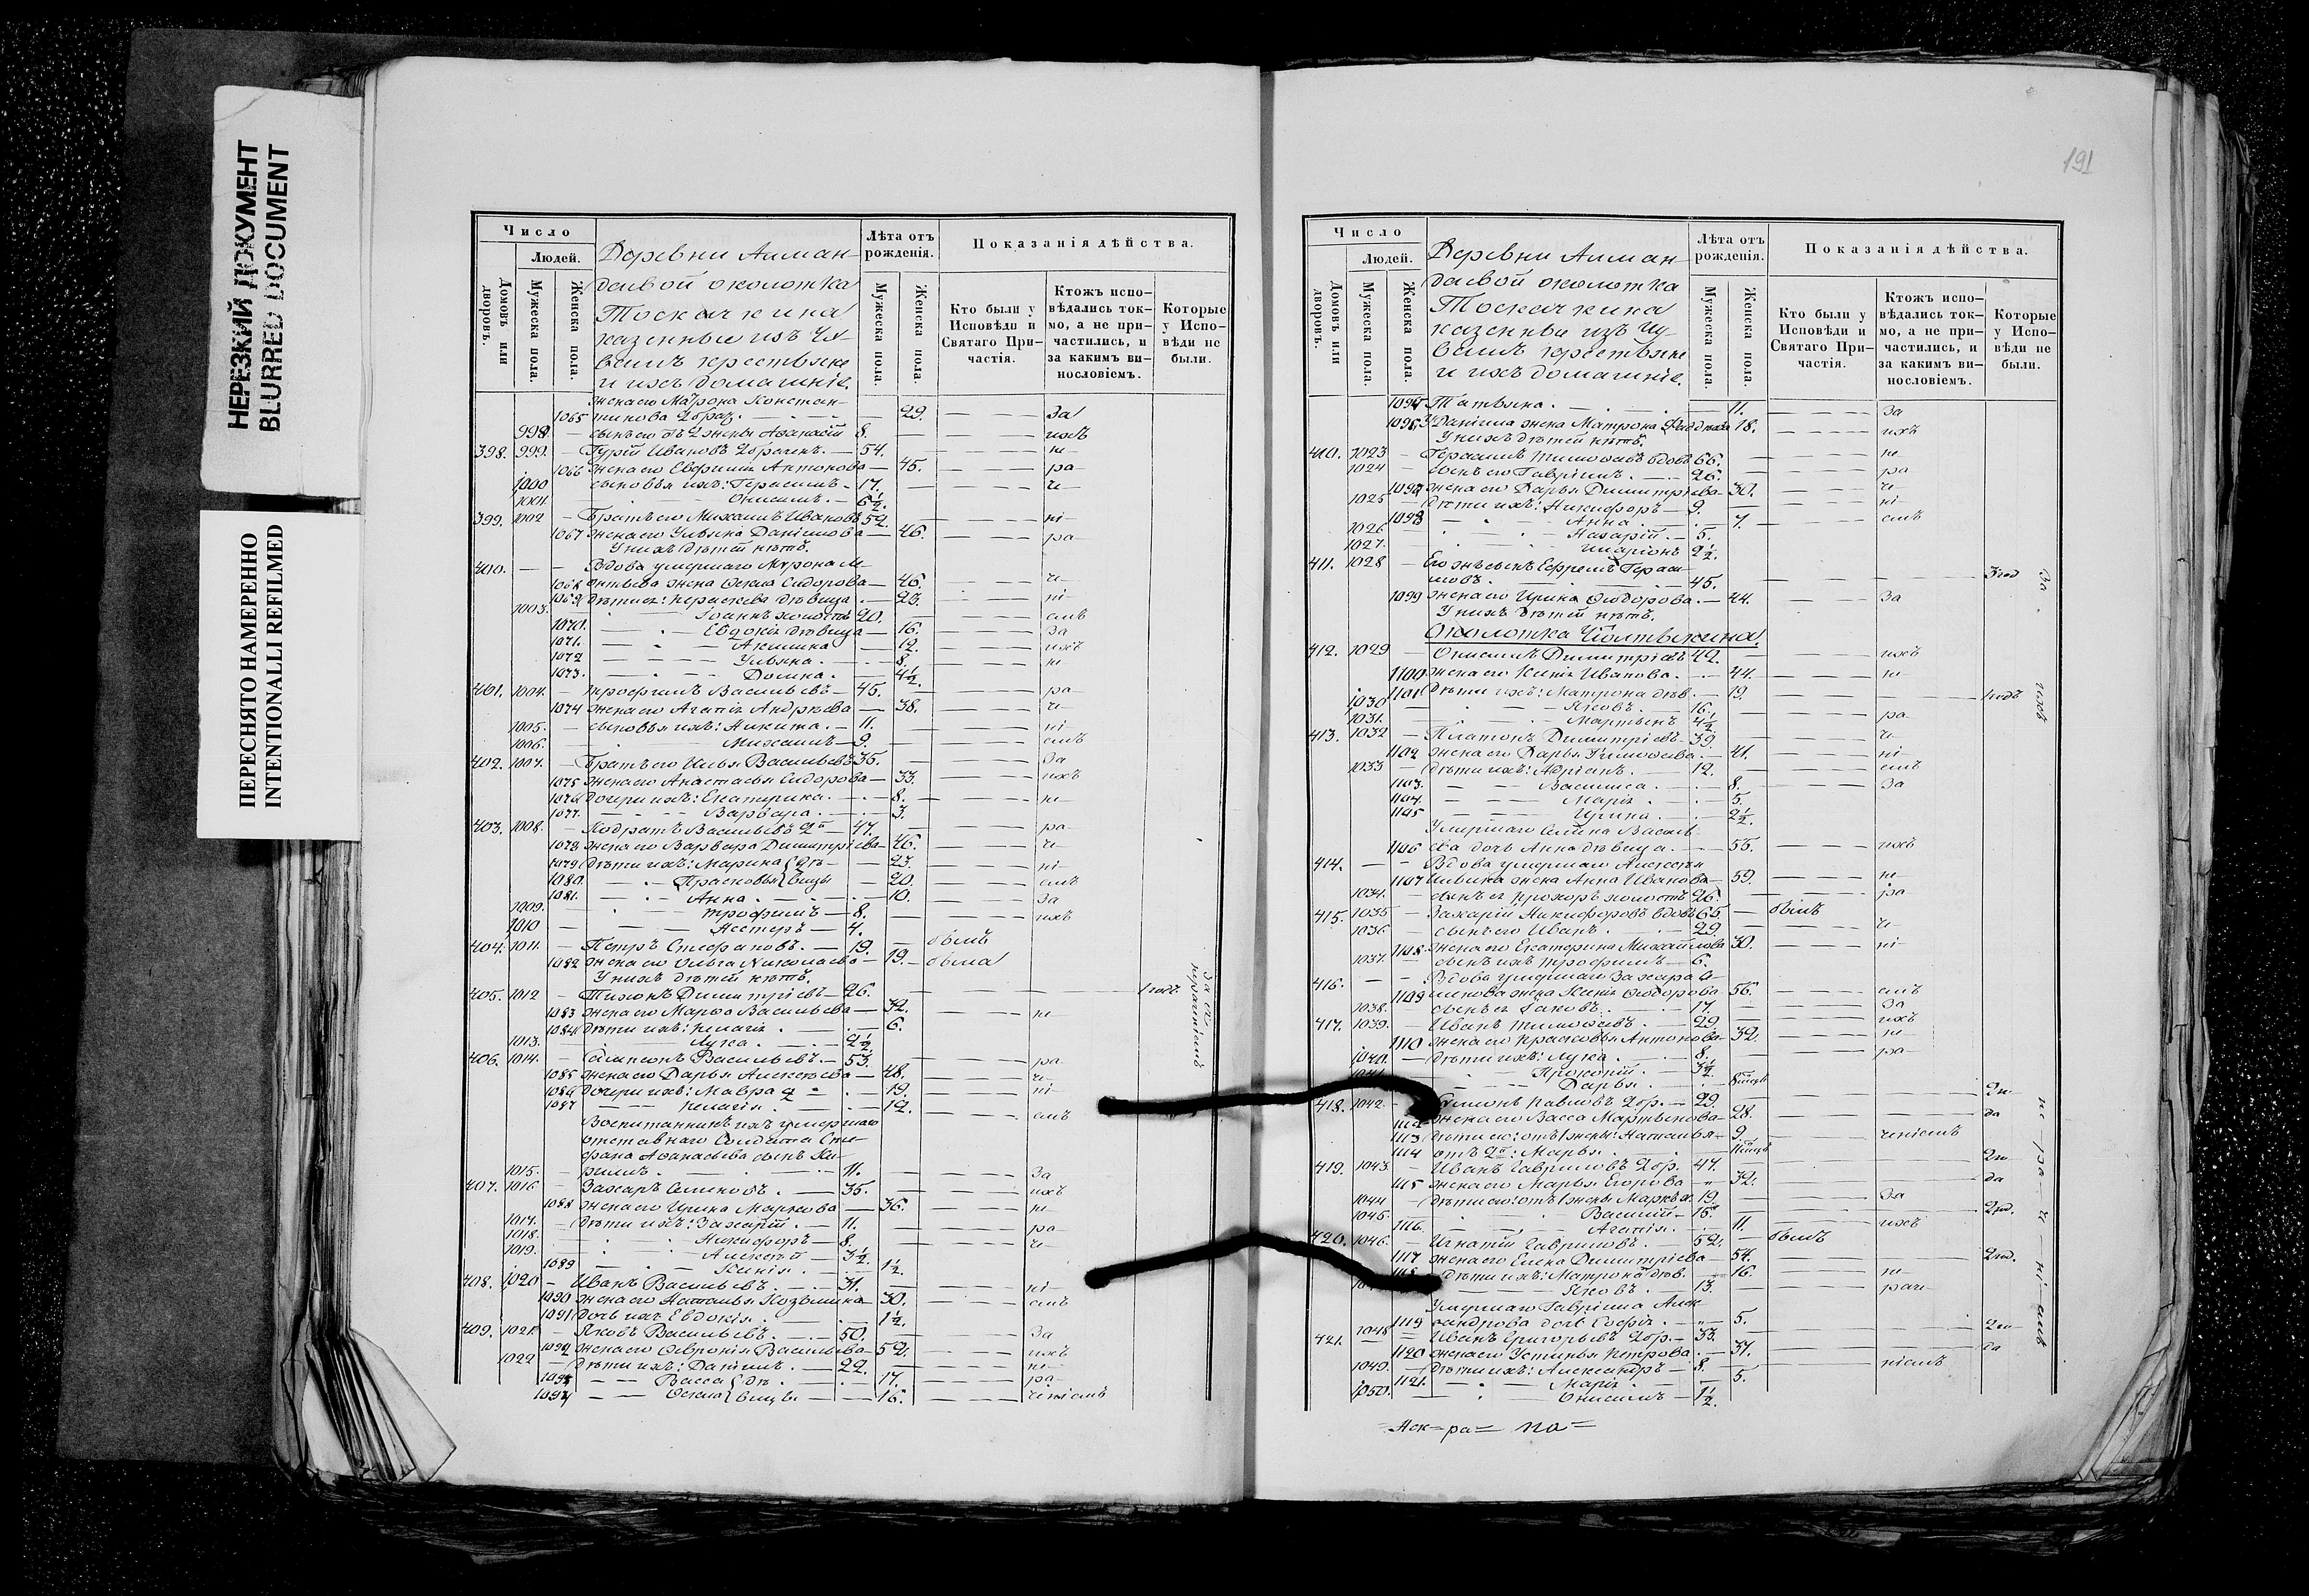 НЕРЕЗКИЙ ДОКУМЕНТ
BLURRED DOCUMENT
ПЕРЕСНЯТО НАМЕРЕННО
INTENTIONALLI REFILMED
Число
Людей.
Домовъ или дворовъ.
Мужеска пола.
Женска пола.
Деревни Алман-
даевой околотка
Тоскачкина
казенные изъ Чу-
вашъ крестьяне
и ихъ домашніе.
Лѣта отъ рожденія.
Мужеска пола.
Женска пола.
Показанія дѣйства.
Кто были у Исповѣди и Святаго Причастія.
Ктожъ исповѣдались токмо, а не причастились, и за какимъ винословіемъ.
Которые у Исповѣди не были.
жена его Матрона Констан-
1065 тинова 2 бракъ. 29. За
998. сынъ его отъ 2 жены Аѳанасій 8. ихъ
398. 999. Гурій Ивановъ 54. не
1066 жена его Евфимія Антонова 45. ра
1000 сыновья ихъ: Герасимъ 17. че
1001 Онисимъ 6½.
399. 1002 Братъ его Михаилъ Ивановъ 52. ні
1067 жена его Ульяна Даніилова 46. ра
У нихъ дѣтей нѣтъ.
400. Вдова умершаго Мирона Ле-
1068 онтьева жена Ѳекла Сидорова 46. че
1069 дѣти ея: Параскева дѣвица 23. ні
1003. Іоаннъ холостъ 20. емъ
1070. Евдокія дѣвица 16. За
1071. Акилина 12. ихъ
1072 Ульяна 8. не
1073. Домна 4½.
401. 1004. Трофимъ Васильевъ 45. ра
1074 жена его Агапія Андреева 38. че
1005. сыновья ихъ: Никита 11. ні
1006. Михаилъ 9. емъ
402. 1007. Братъ его Илья Васильевъ 35. За
1075 жена его Анастасья Сидорова 33. ихъ
1076 дочери ихъ: Екатерина 8. не
1077. Варвара 3.
403. 1008. Кодратъ Васильевъ 2й 47. ра
1078 жена его Варвара Димитріева 46. че
1079 дѣти ихъ: Марина дѣ- 23. ні
1080. Прасковья вицы 20. емъ
1081. Анна 10. За
1009. Трофимъ 8. ихъ
1010 Несторъ 4.
404. 1011. Петръ Стефановъ 19. былъ
1082 жена его Ольга Николаева 19. была
У нихъ дѣтей нѣтъ.
405. 1012 Тихонъ Димитріевъ 26. 1 годъ
1083 жена его Марѳа Васильева 32. не
1084 дѣти ихъ: Пелагія 6.
1013. Лука 2½.
406. 1014. Сампсонъ Васильевъ 53. ра
1085 жена его Дарья Алексѣева 48. че
1086 дочери ихъ: Мавра 19. ні
1087 Пелагія 12. емъ
Воспитанникъ ихъ умершаго
отставнаго Солдата Сте-
фана Аѳанасьева сынъ Ки-
1015. риллъ 11. За
407. 1016 Захаръ Семеновъ 35. ихъ
1088 жена его Ирина Маркова 36. не
1017. дѣти ихъ: Захарій 11. ра
1018. Никифоръ 8. че
1019. Алексѣй 3½
1089 Ксенія 1½.
408. 1020 Иванъ Васильевъ 31. ні
1090 жена его Наталья Козьмина 30. емъ
1091 дочь ихъ Евдокія 1½.
409. 1021. Яковъ Васильевъ 50. За
1092 жена его Ѳевронія Васильева 52. ихъ
1022 дѣти ихъ: Даніилъ 22. не
1093 Васса дѣ- 17. ра
1094 Ѳекла вицы 16. ченіемъ
За не
раченіемъ
191
Число
Людей.
Домовъ или дворовъ.
Мужеска пола.
Женска пола.
Деревни Алман-
даевой околотка
Тоскачкина
казенные изъ Чу-
вашъ крестьяне
и ихъ домашніе.
Лѣта отъ рожденія.
Мужеска пола.
Женска пола.
Показанія дѣйства.
Кто были у Исповѣди и Святаго Причастія.
Ктожъ исповѣдались токмо, а не причастились, и за какимъ винословіемъ.
Которые у Исповѣди не были.
1095 Татьяна 11. За
1096 У Даніила жена Матрона 18. ихъ
У нихъ дѣтей нѣтъ.
410. 1023 Герасимъ Тимоѳеевъ вдовъ 66. не
1024 сынъ его Гавріилъ 26. ра
1097 жена его Дарья Димитріева 30. че
1025 дѣти ихъ: Никифоръ 9. ні
1098 Анна 7. емъ
1026 Назарій 5.
1027. Иларіонъ 2½.
411. 1028 Его жъ сынъ Ефремъ Гераси-
мовъ 45. 3 год
1099 жена его Ирина Ѳеодорова 44. За
У нихъ дѣтей нѣтъ.
412. 1029 Онисимъ Димитріевъ 42. ихъ
1100 жена его Ксенія Иванова 44. не
1101 дѣти ихъ: Матрона дѣв. 19. 1 годъ
1030 Яковъ 16.
1031. Мартынъ 4½ ра
413. 1032 Платонъ Димитріевъ 39. че
1102 жена его Дарья Тимоѳеева 41. ні
1033 дѣти ихъ: Адріанъ 12. емъ
1103. Василиса 8. За
1104. Марія 5.
1105 Ирина 2½.
Умершаго Семена Василь-
1106 ева дочь Анна дѣвица 55. ихъ
414. Вдова умершаго Алексѣя
1107 Ильина жена Анна Иванова 59. не
1034. сынъ ея Прохоръ холостъ 26. ра
415. 1035 Захарій Никифоровъ вдовъ 65. былъ
1036 сынъ его Иванъ 29. че
1108 жена его Екатерина Михайлова 30. ні
1037. сынъ ихъ Трофимъ 6.
416. Вдова умершаго Захара
1109 жена Ксенія Ѳеодорова 56. емъ
1038. сынъ ея Іаковъ 17. За
417. 1039. Иванъ Тимоѳеевъ 29. ихъ
1110 жена его Прасковья Антонова 32. не
1040. дѣти ихъ: Лука 8. ра
Прокопій 3½.
Дарья
418. 1042. Павловъ 2 бр. 29.
жена его Васса Мартынова 28. да
1113 дѣти его: отъ 1 жены: Наталья 9. ченіемъ
1114 отъ 2й: Марья
419. 1043. Иванъ Гавриловъ 2 бр. 47.
1115 жена его Марья Егорова 32. да
1044 дѣти его: отъ 1 жены Маркъ 19. За
1045. Василій 15.
1116. Агапія 11. ихъ
420. 1046. Игнатій Гавриловъ 52. былъ
1117 жена его Елена Димитріева 54.
дѣти ихъ: Матрона дѣв. 16. не
Яковъ 13. рачи
Умершаго Гавріила Алек-
1119 сандрова дочь Софія 5.
421. 1048 Иванъ Григорьевъ 2 бр. 33.
1120 жена его Устинья Петрова 37. да
1049. дѣти ихъ: Александръ 8. ніемъ
1121. Марія 5.
1050. Онисимъ 1½.
За ихъ не ра че ні емъ